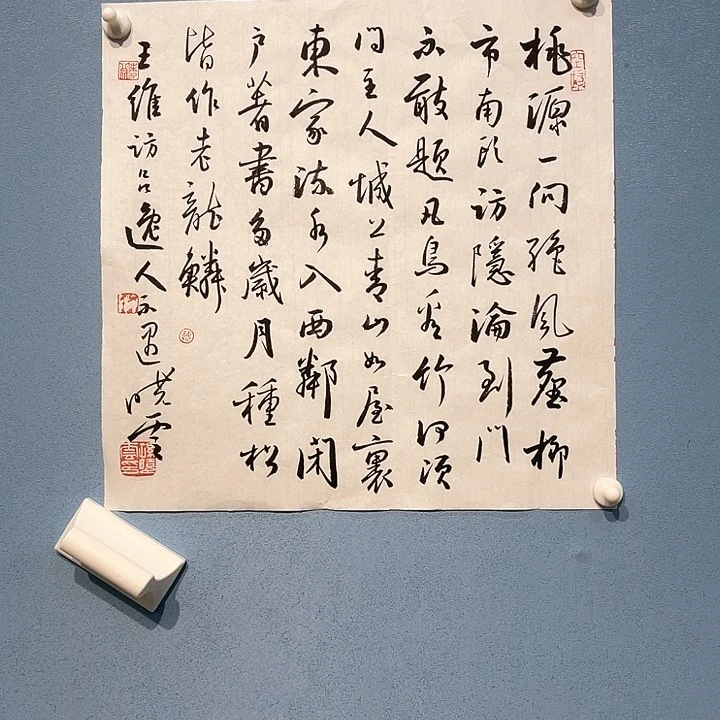 桃源一向絕風塵柳
市南頭訪隱淪到門
不敢題凡鳥看竹何須
問主人城上青山如屋裏
東家流水入西鄰閉
户著書多歲月種松
皆作老龍鱗
王維訪呂逸人不遇曉雲